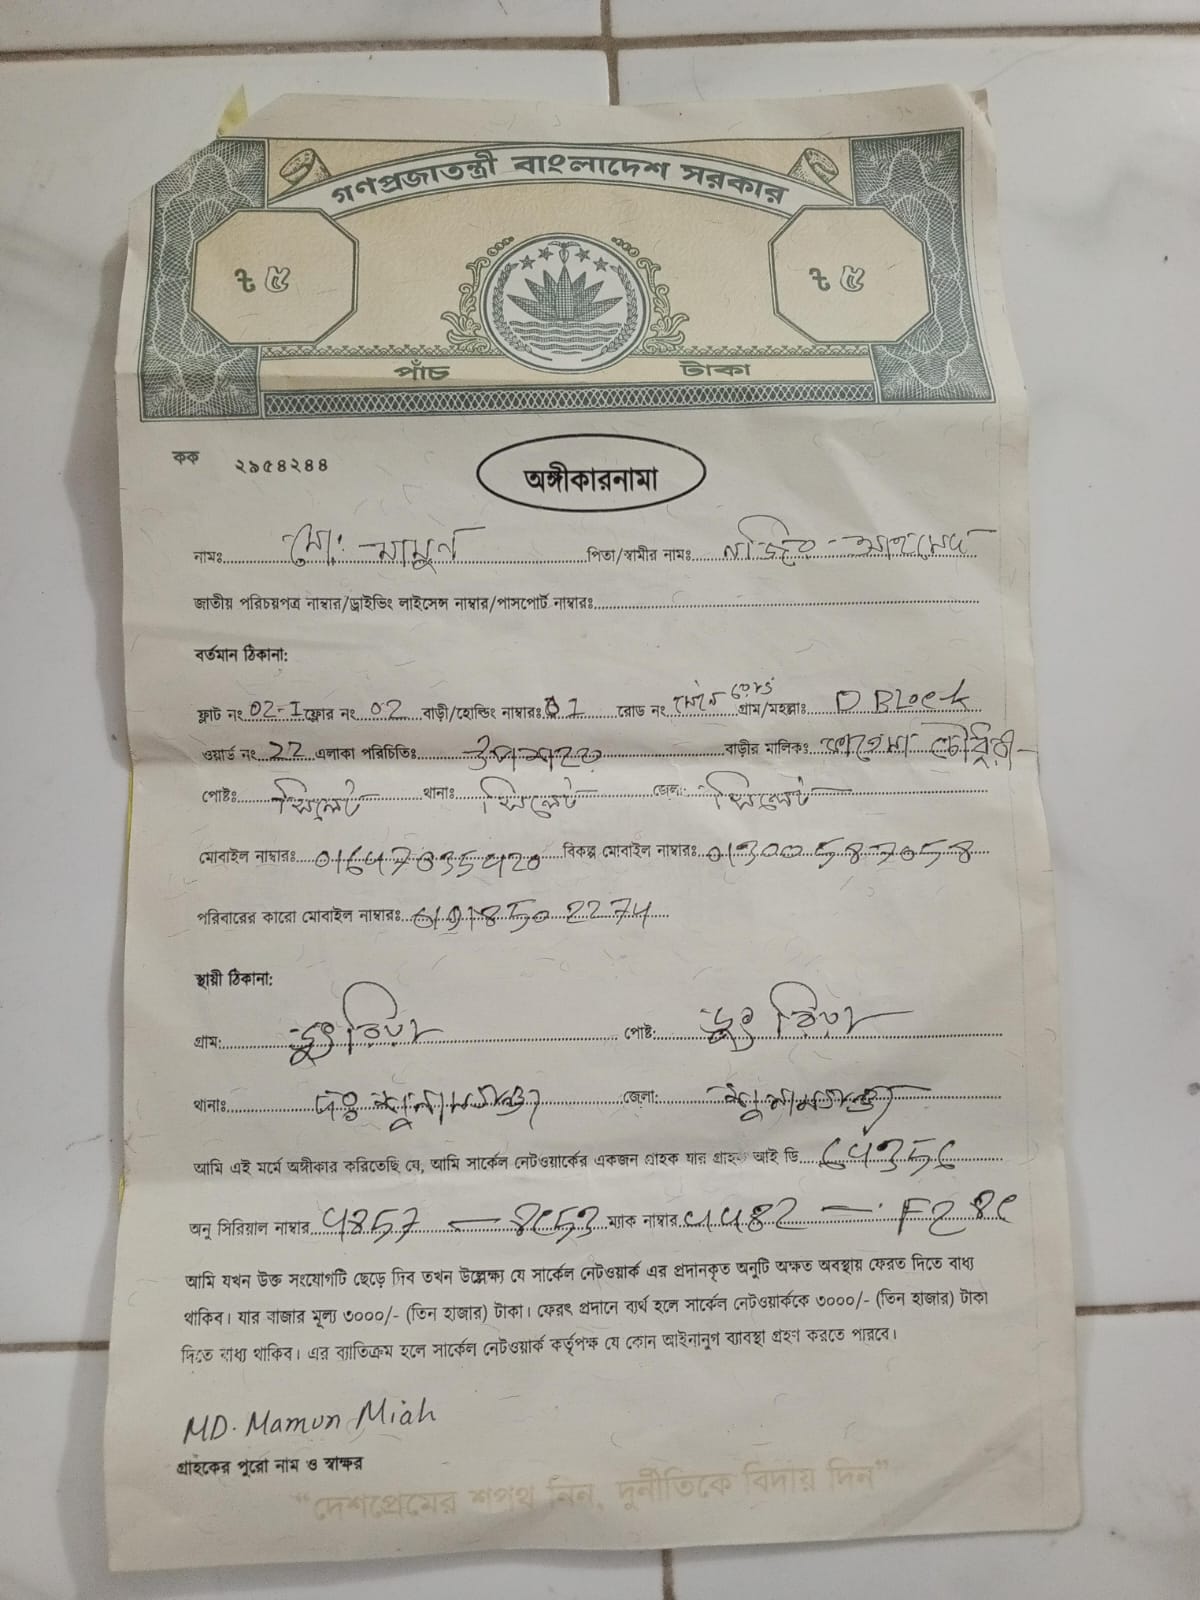 গণপ্রজাতন্ত্রী বাংলাদেশ সরকার
৳ ৫ ৳ ৫
পাঁচ টাকা
কক ২৯৫৪২৪৪
অঙ্গীকারনামা
নামঃ মো: মামুন পিতা/স্বামীর নামঃ নাজির আহমেদ
জাতীয় পরিচয়পত্র নাম্বার/ড্রাইভিং লাইসেন্স নাম্বার/পাসপোর্ট নাম্বারঃ
বর্তমান ঠিকানা:
ফ্লাট নং 02-I ফ্লোর নং 02 বাড়ী/হোল্ডিং নাম্বারঃ 01 রোড নং মেইন রোড গ্রাম/মহল্লাঃ D BLock
ওয়ার্ড নং 22 এলাকা পরিচিতিঃ উপশহর বাড়ীর মালিকঃ চৌধুরী
পোষ্টঃ সিলেট থানাঃ সিলেট জেলা: সিলেট
মোবাইল নাম্বারঃ বিকল্প মোবাইল নাম্বারঃ
পরিবারের কারো মোবাইল নাম্বারঃ
স্থায়ী ঠিকানা:
গ্রাম: পোষ্ট:
থানাঃ জেলা: সুনামগঞ্জ
আমি এই মর্মে অঙ্গীকার করিতেছি যে, আমি সার্কেল নেটওয়ার্কের একজন গ্রাহক যার গ্রাহক আই ডি
অনু সিরিয়াল নাম্বার ম্যাক নাম্বার
আমি যখন উক্ত সংযোগটি ছেড়ে দিব তখন উল্লেক্ষ্য যে সার্কেল নেটওয়ার্ক এর প্রদানকৃত অনুটি অক্ষত অবস্থায় ফেরত দিতে বাধ্য
থাকিব। যার বাজার মূল্য ৩০০০/- (তিন হাজার) টাকা। ফেরৎ প্রদানে ব্যর্থ হলে সার্কেল নেটওয়ার্ককে ৩০০০/- (তিন হাজার) টাকা
দিতে বাধ্য থাকিব। এর ব্যাতিক্রম হলে সার্কেল নেটওয়ার্ক কর্তৃপক্ষ যে কোন আইনানুগ ব্যাবস্থা গ্রহণ করতে পারবে।
MD. Mamun Miah
গ্রাহকের পুরো নাম ও স্বাক্ষর
“দেশপ্রেমের শপথ নিন, দুর্নীতিকে বিদায় দিন”